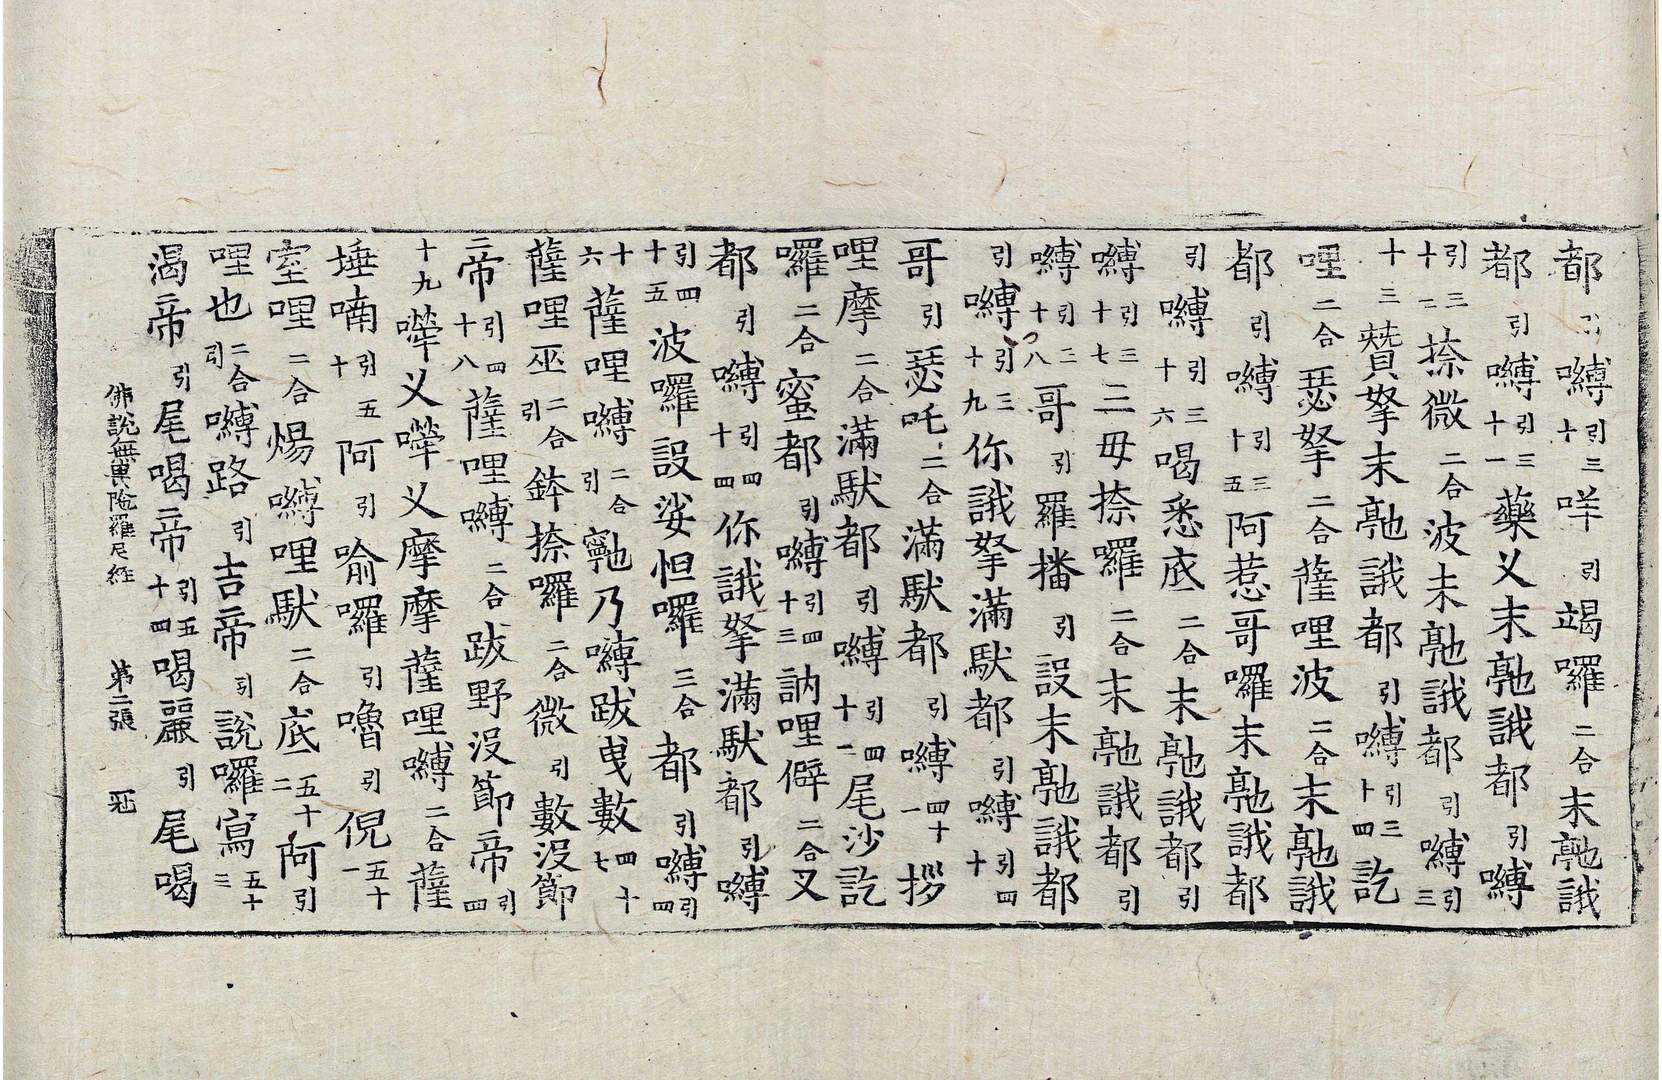 都引嚩引三十咩引竭囉二合末亄誐
都引嚩引三十一藥乂末亄誐都引嚩
引三十二捺微二合波末亄誐都引嚩引三
十三贊拏末亄誐都引嚩引三十四訖
哩二合瑟拏二合薩哩波二合末亄誐
都引嚩引三十五阿惹哥囉末亄誐都
引嚩引三十六喝悉底二合末亄誐都引
嚩引三十七三毋捺囉二合末亄誐都引
嚩引三十八哥引羅播引設末亄誐都
引嚩引三十九你誐拏滿馱都引嚩引四十
哥引瑟吒二合滿馱都引嚩四十一拶
哩摩二合滿馱都引嚩引四十二尾沙訖
囉二合蜜都引嚩引四十三訥哩僻二合叉
都引嚩引四十四你誐拏滿馱都引嚩
引四十五波囉設娑怛囉三合都引嚩引四
十六薩哩嚩二合引亄乃嚩跋曳數四十七
薩哩巫二合引鉢捺囉二合微引數沒節
帝引四十八薩哩嚩二合跋野沒節帝引四
十九嚩乂嚩乂摩摩薩哩嚩二合薩
埵喃引五十阿引喻囉引嚕引倪五十一
室哩二合焬嚩哩馱二合底五十二阿引
哩也二合引嚩路引吉帝引說囉寫五十三
渴帝引尾喝帝引五十四喝麗引尾喝
佛說無畏陁羅尼經 第二張 冠